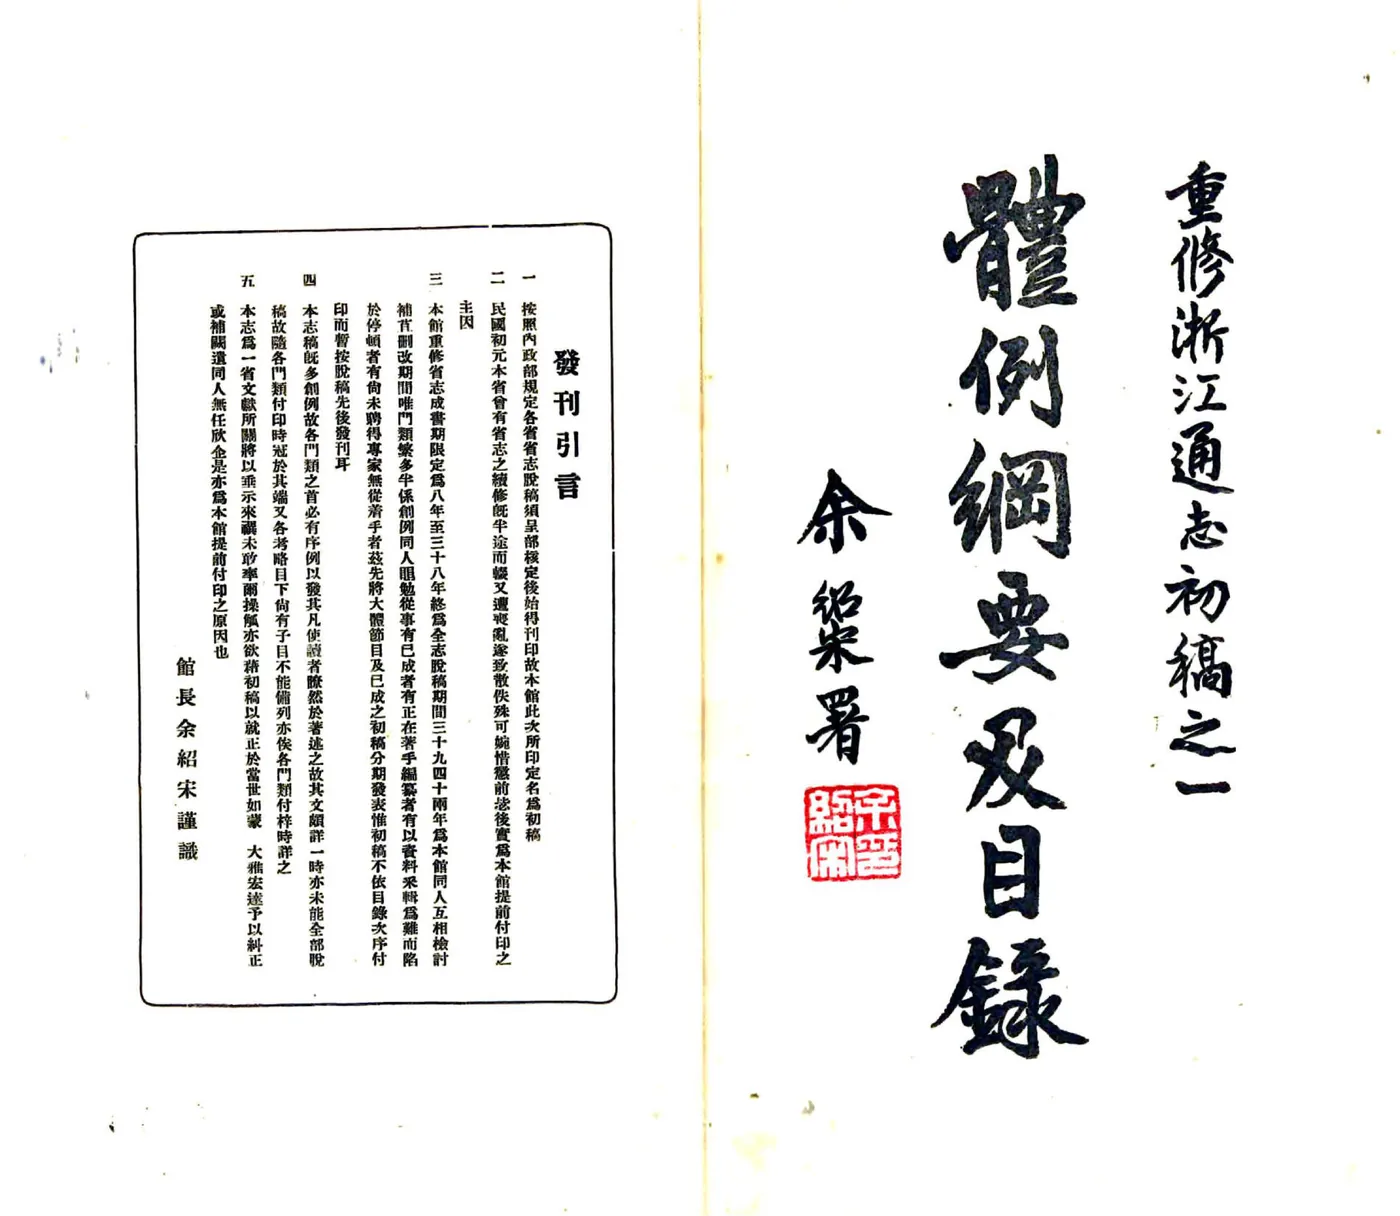 重修浙江通志初稿之一
體例綱要及目錄
余紹宋署
余紹宋印
發刊引言
一 按照內政部規定各省省志脫稿須呈部核定後始得刊印故本館此次所印定名爲初稿
二 民國初元本省曾有省志之續修旣半途而輟又遭喪亂遂致散佚殊可婉惜懲前毖後實爲本館提前付印之
主因
三 本館重修省志成書期限定爲八年至三十八年終爲全志脫稿期間三十九四十兩年爲本館同人互相檢討
補苴刪改期間唯門類繁多半係創例同人黽勉從事有已成者有正在著手編纂者有以資料采輯爲難而陷
於停頓者有尙未聘得專家無從着手者茲先將大體節目及已成之初稿分期發表惟初稿不依目錄次序付
印而暫按脫稿先後發刊耳
四 本志稿旣多創例故各門類之首必有序例以發其凡使讀者瞭然於著述之故其文頗詳一時亦未能全部脫
稿故隨各門類付印時冠於其端又各考略目下尙有子目不能備列亦俟各門類付梓時詳之
五 本志爲一省文獻所關將以垂示來禩未敢率爾操觚亦欲藉初稿以就正於當世如蒙 大雅宏達予以糾正
或補闕遺同人無任欣企是亦爲本館提前付印之原因也
館長余紹宋謹識